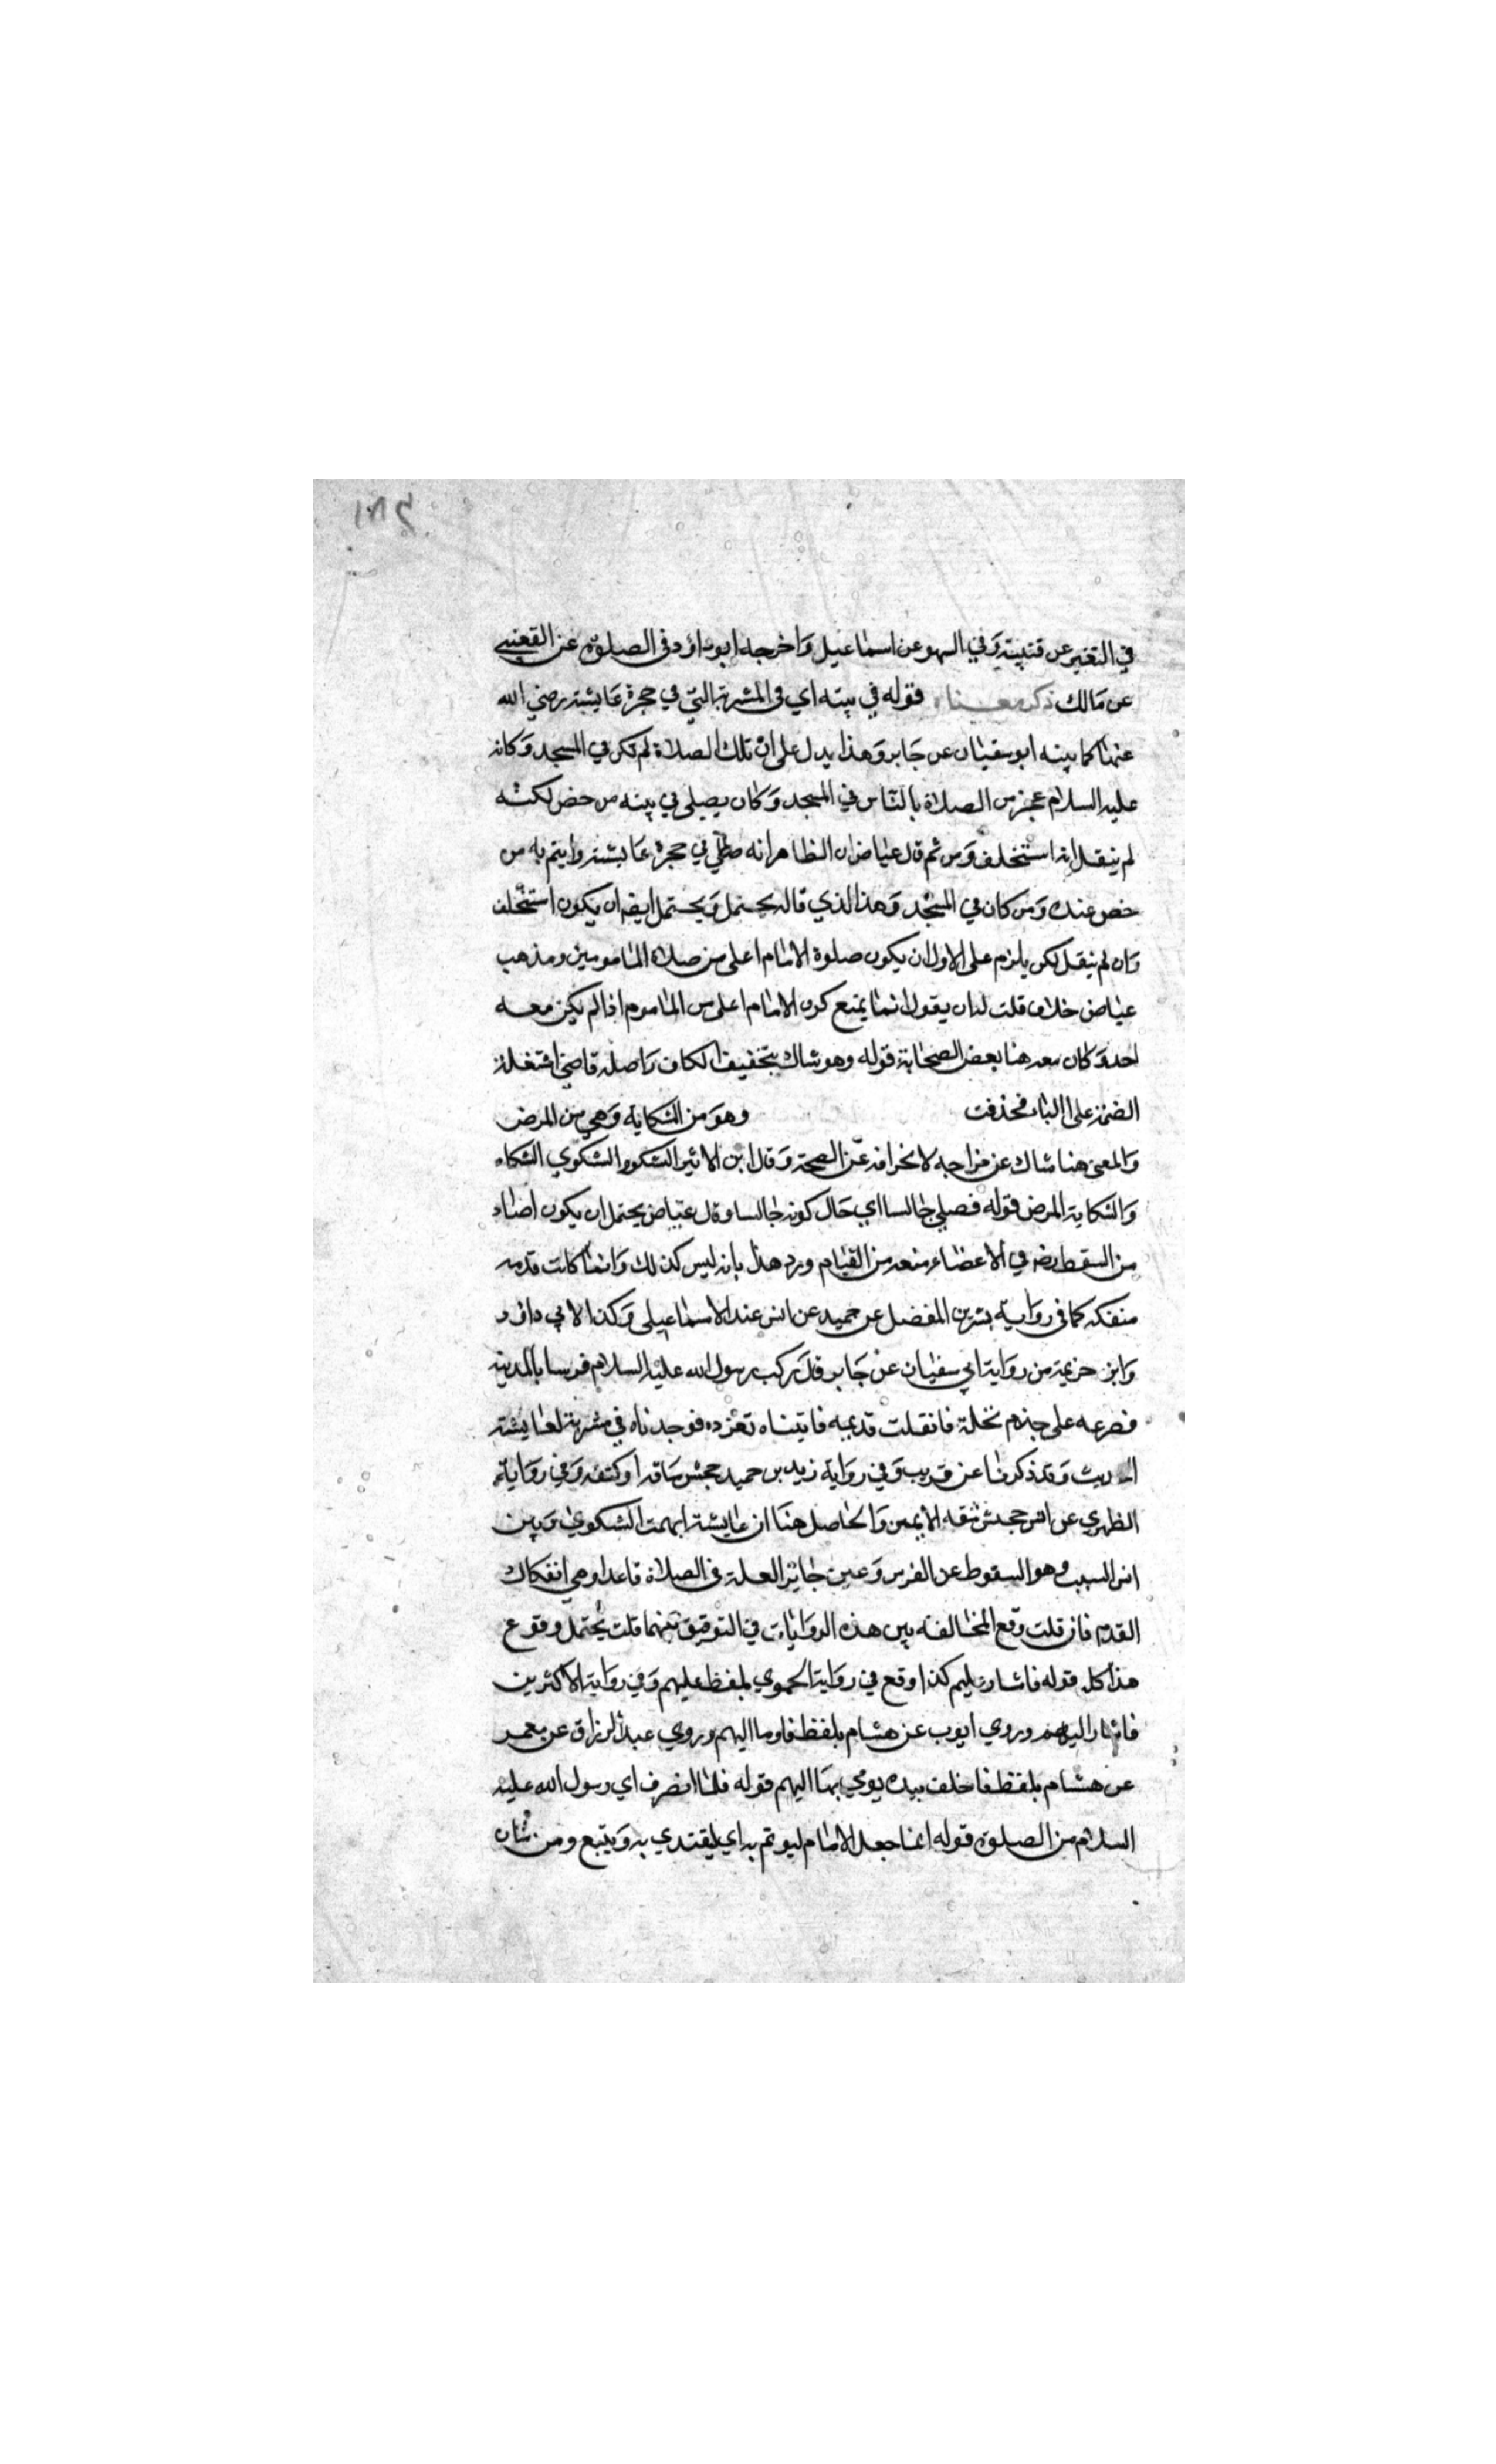 في التقير عن قتيبة وفي السهو عن اسماعيل واخرجه ابو داؤد في الصلوة عن القعنبي
عن مالك ذكر معناه قوله في بيته اي في المشربة التي في حجرة عايشة رضي الله
عنها كما بينه ابو سفيان عن جابر وهذا يدل على ان تلك الصلاة لم تكن في المسجد وكانه
عليه السلام عجز من الصلاة بالناس في المسجد وكان يصلي في بيته من حضر لكنه
لم ينقل انه استخلف ومن ثم قال عياض ان الظاهر انه صلى في حجرة عايشة وايتم به من
حضر عنده ومن كان في المسجد وهذا الذي قاله يحتمل ويحتمل ايضا ان يكون استخلف
وان لم ينقل لكن يلزم على الاول ان يكون صلوة الامام اعلى من صلاة المامومين ومذهب
عياض خلاف قلت له ان يقول انما يمنع كون الامام اعلى من الماموم اذا لم يكن معه
احد وكان معه هنا بعض الصحابة قوله وهو شاك بتخفيف الكاف واصله قاضي اشتغلت
الضمة على الباء فحذفت وهو من الشكاية وهي من المرض
والمعنى هنا شاك عن مزاجه لانحرافه عن الصحة وقال ابن الاثير الشكو والشكوي الشكاء
والشكاية المرض قوله فصلي جالسا اي حال كونه جالسا وقال عياض يحتمل ان يكون اصابه
من السقط رض في الاعضاء منعه من القيام ورد هذا بانه ليس كذلك وانما كانت قدمه
منفكه كما في رواية بشر بن المفضل عن حميد عن انس عند الاسماعيلي وكذا لابي داؤد
وابن خزيمة من رواية ابي سفيان عن جابر قال ركب رسول الله عليه السلام فرسا بالمدينة
فصرعه على جذم نخلة فانفلت قديمه فاتيناه تعوده فوجدناه في مشربة لعايشة
الحديث وقد ذكرنا عن قريب وفي رواية زيد بن حميد جحش ساقه او كتفه وفي رواية
الظهري عن انس جحش شقه الايمن والحاصل هنا ان عايشة ابهمت الشكوي وبين
انس السبب وهو السقوط عن الفرس وعين جابر العلة في الصلاة قاعدا وهي انفكاك
القدم فان قلت وقع المخالفة بين هذه الروايات في التوفيق بينهما قلت يحتمل وقوع
هذا كل قوله فاشار عليهم كذا وقع في رواية الحموي بلفظ عليهم وفي رواية الاكثرين
فاشار اليهم وروي ايوب عن هشام بلفظ فاوما اليهم وروي عبد الرزاق عن معمر
عن هشام بلفظ فاخلف بيده يومي بها اليهم قوله فلما انصرف اي رسول الله عليه
السلام من الصلوة قوله انما جعل الامام ليوتم به اي ليقتدي به ويتبع ومن شان